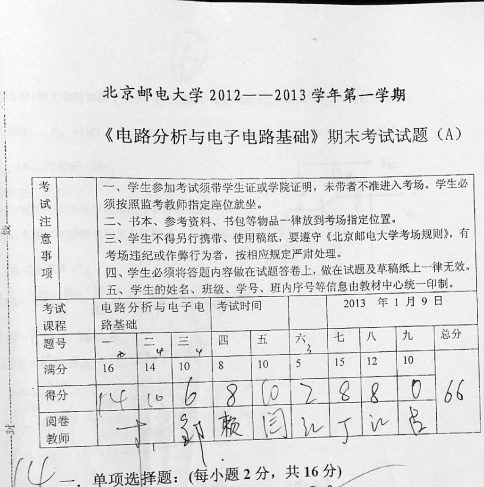 北京邮电大学 2012——2013 学年第一学期
《电路分析与电子电路基础》期末考试试题（A）
考试注意事项
一、学生参加考试须带学生证或学院证明，未带者不准进入考场。学生必
须按照监考教师指定座位就坐。
二、书本、参考资料、书包等物品一律放到考场指定位置。
三、学生不得另行携带、使用稿纸，要遵守《北京邮电大学考场规则》，有
考场违纪或作弊行为者，按相应规定严肃处理。
四、学生必须将答题内容做在试题答卷上，做在试题及草稿纸上一律无效。
五、学生的姓名、班级、学号、班内序号等信息由教材中心统一印制。
考试课程 电路分析与电子电路基础 考试时间 2013 年 1 月 9 日
题号 一 二 三 四 五 六 七 八 九 总分
满分 16 14 10 8 10 5 15 12 10
得分 14 10 6 8 10 2 8 8 0 66
阅卷教师
14 一、单项选择题：（每小题 2 分，共 16 分）